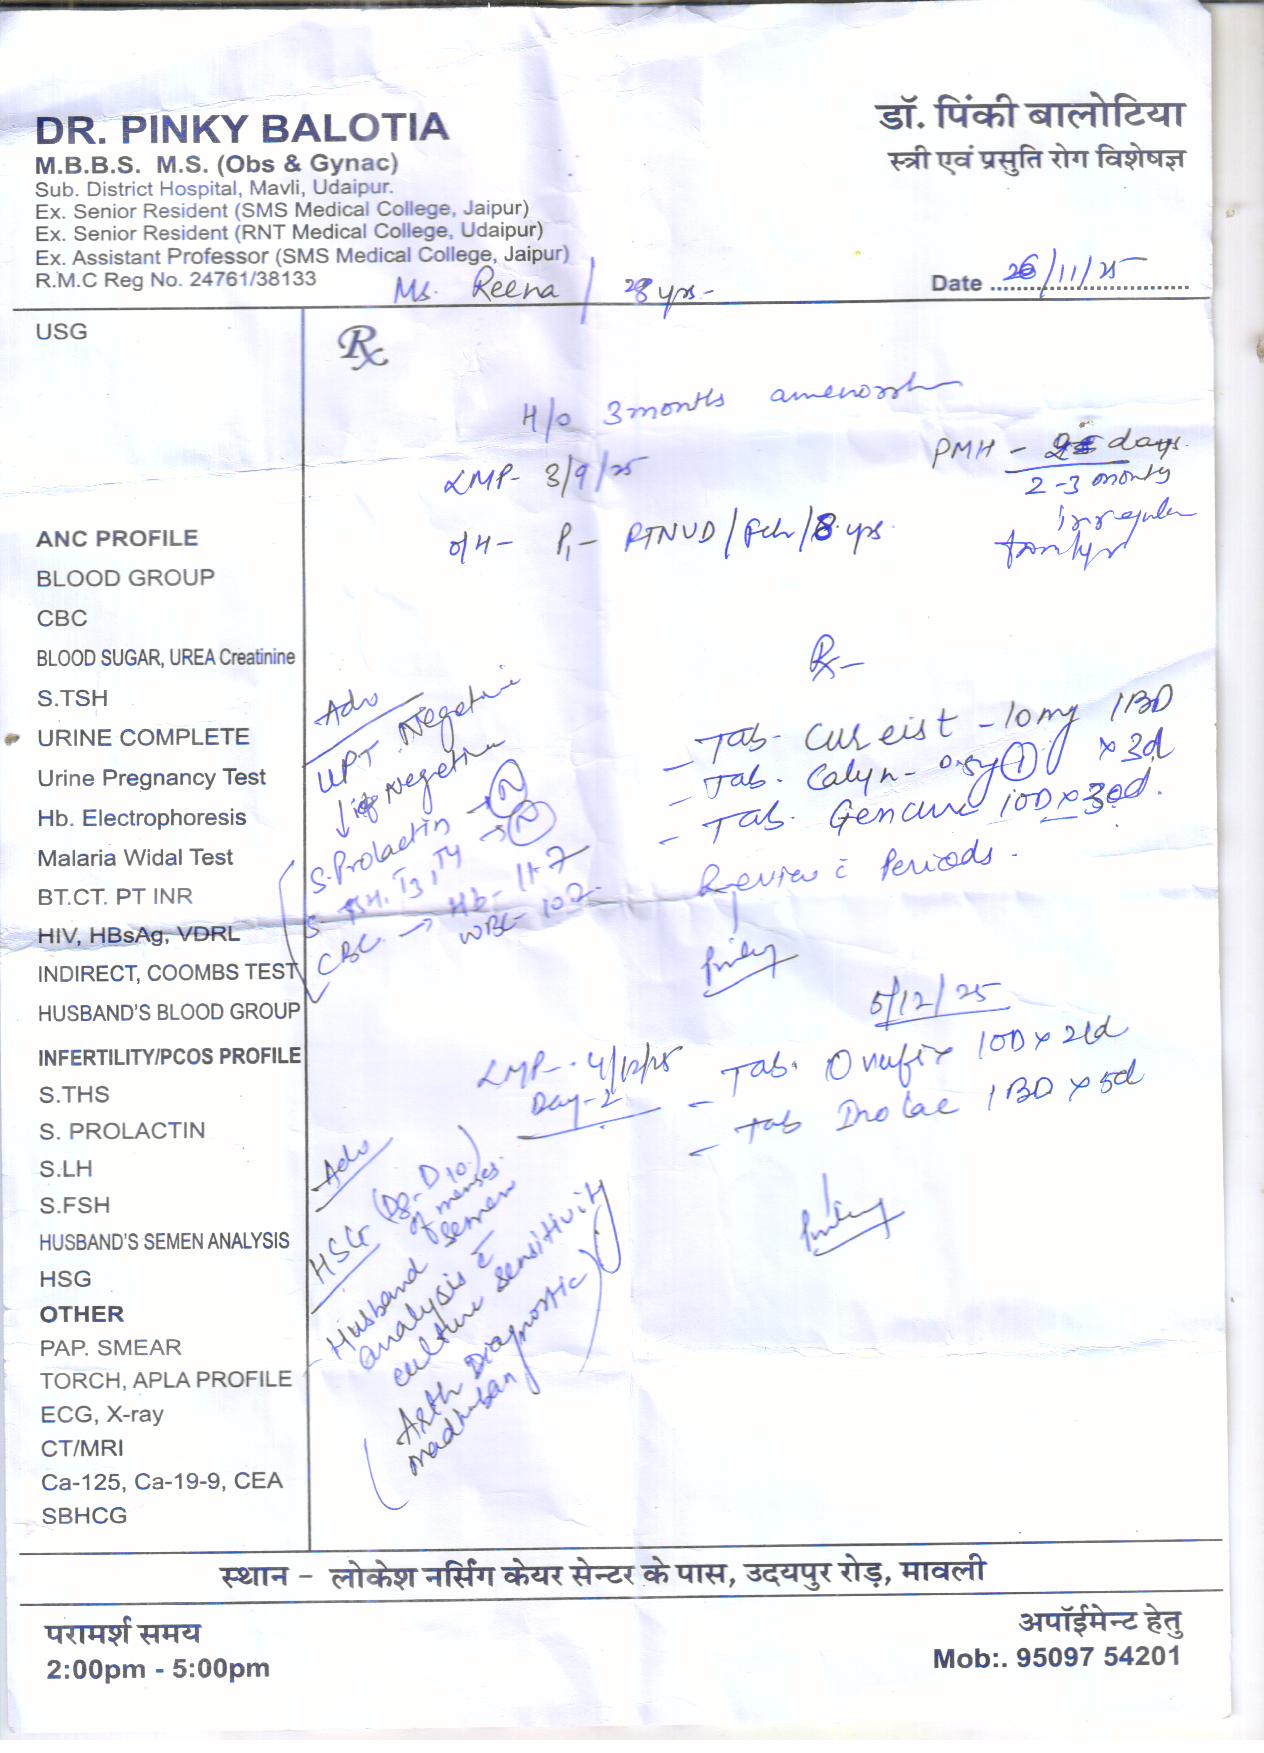 DR. PINKY BALOTIA
M.B.B.S. M.S. (Obs & Gynac)
Sub. District Hospital, Mavli, Udaipur.
Ex. Senior Resident (SMS Medical College, Jaipur)
Ex. Senior Resident (RNT Medical College, Udaipur)
Ex. Assistant Professor (SMS Medical College, Jaipur)
R.M.C Reg No. 24761/38133
डॉ. पिंकी बालोटिया
स्त्री एवं प्रसुति रोग विशेषज्ञ
Ms. Reena / 28 yrs-
Date 26/11/25
USG
ANC PROFILE
BLOOD GROUP
CBC
BLOOD SUGAR, UREA Creatinine
S.TSH
URINE COMPLETE
Urine Pregnancy Test
Hb. Electrophoresis
Malaria Widal Test
BT.CT. PT INR
HIV, HBsAg, VDRL
INDIRECT, COOMBS TEST
HUSBAND'S BLOOD GROUP
INFERTILITY/PCOS PROFILE
S.THS
S. PROLACTIN
S.LH
S.FSH
HUSBAND'S SEMEN ANALYSIS
HSG
OTHER
PAP. SMEAR
TORCH, APLA PROFILE
ECG, X-ray
CT/MRI
Ca-125, Ca-19-9, CEA
SBHCG
Rx
H/o 3 months
LMP- 3/9/25
PMH - days
2-3 months
irregular
O/H- P1- /8 yrs.
Adv
UPT Negetive
↓ if Negetive
S. Prolactin → N
S. TSH, T3, T4 → N
CBC → Hb- 11.7
WBC- 10.2
Rx-
- Tab. - 10mg 1BD
- Tab. × 3d
- Tab. 1OD × 30d.
Review c Periods.
5/12/25
LMP- 4/12/25
Day-2
- Tab. 1OD × 21d
- Tab 1BD × 5d
Adv
HSG (D8-D10)
of menses.
- Husband semen
analysis c
culture sensitivity
(Arth Diagnostic)
madhuban
स्थान - लोकेश नर्सिंग केयर सेन्टर के पास, उदयपुर रोड़, मावली
परामर्श समय
2:00pm - 5:00pm
अपॉईमेन्ट हेतु
Mob:. 95097 54201